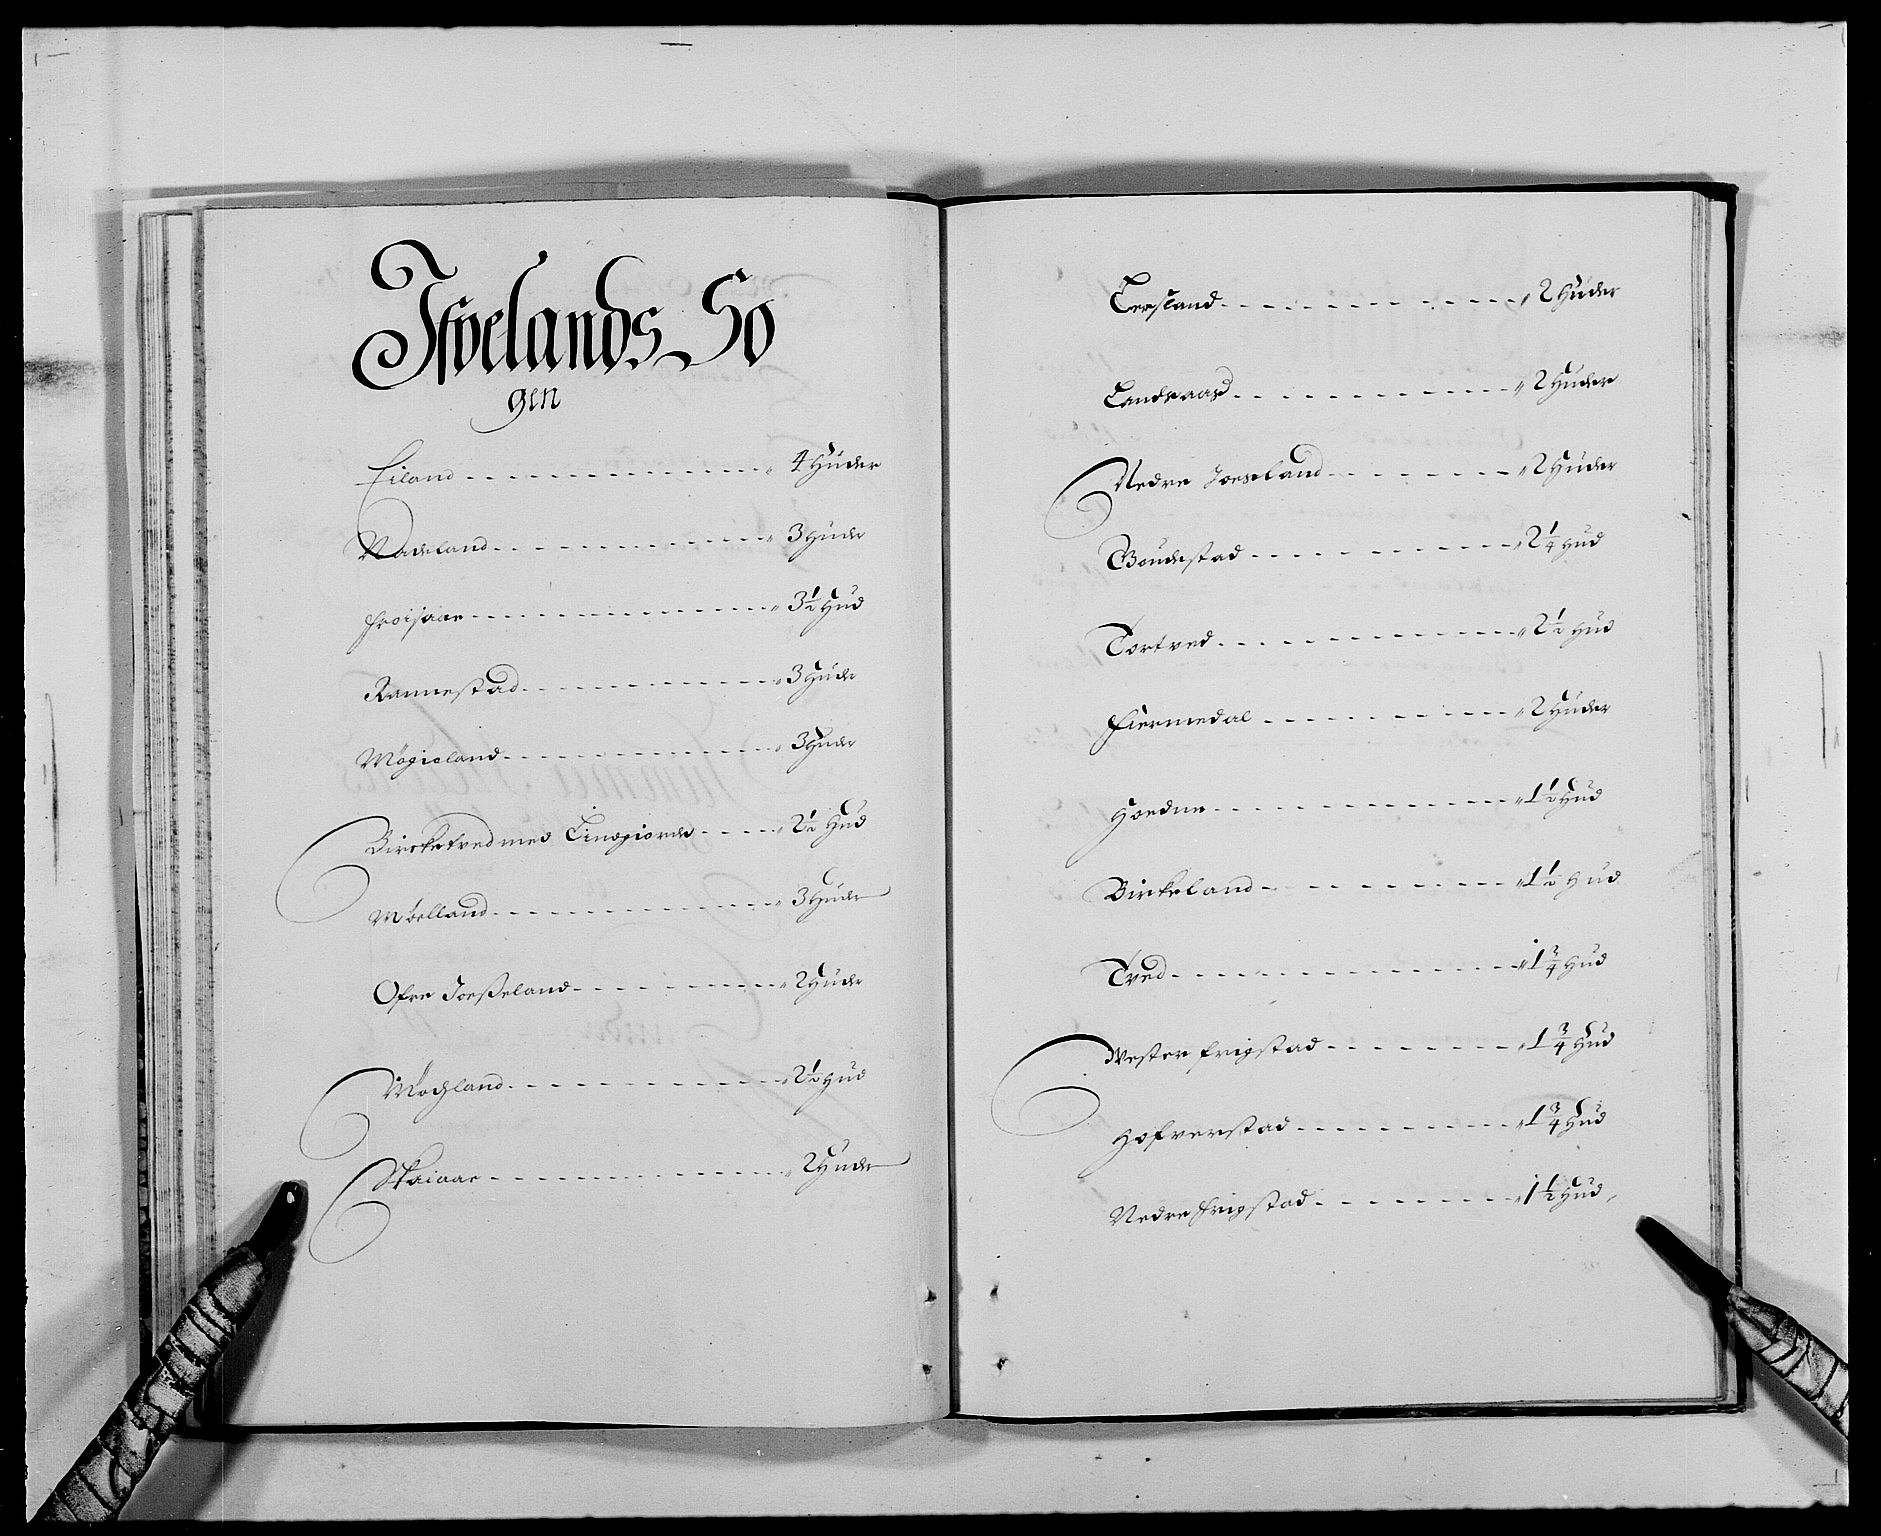 Ifvelands So
gen
Eiland - - - - " 4 Huder
Vadeland - - - - " 3 Huder
Froisaae - - - - " 3 1/2 Hud
Rannestad - - - - " 3 Huder
Møgieland - - - - " 3 Huder
Birchetved med - - - - " 2 1/2 Hud
Möelland - - - - " 3 Huder
Ofre Joeßeland - - - - " 2 Huder
Möchland - - - - " 2 1/2 Hud
Skaiaae - - - - " 2 Huder
Lersland - - - - " 2 Huder
Landsaas - - - - " 2 Huder
Nedre Joesland - - - - " 2 Huder
Boudestad - - - - " 2 1/4 Hud
Tortved - - - - " 2 1/2 Hud
Fiermedal - - - - " 2 Huder
Hoedne - - - - " 1 1/2 Hud
Birkeland - - - - " 1 1/2 Hud
Tved - - - - " 1 3/4 Hud
Wester Frigstad - - - - " 1 3/4 Hud
Hofverstad - - - - " 1 3/4 Hud
Nedre Frigstad - - - - " 1 1/2 Hud